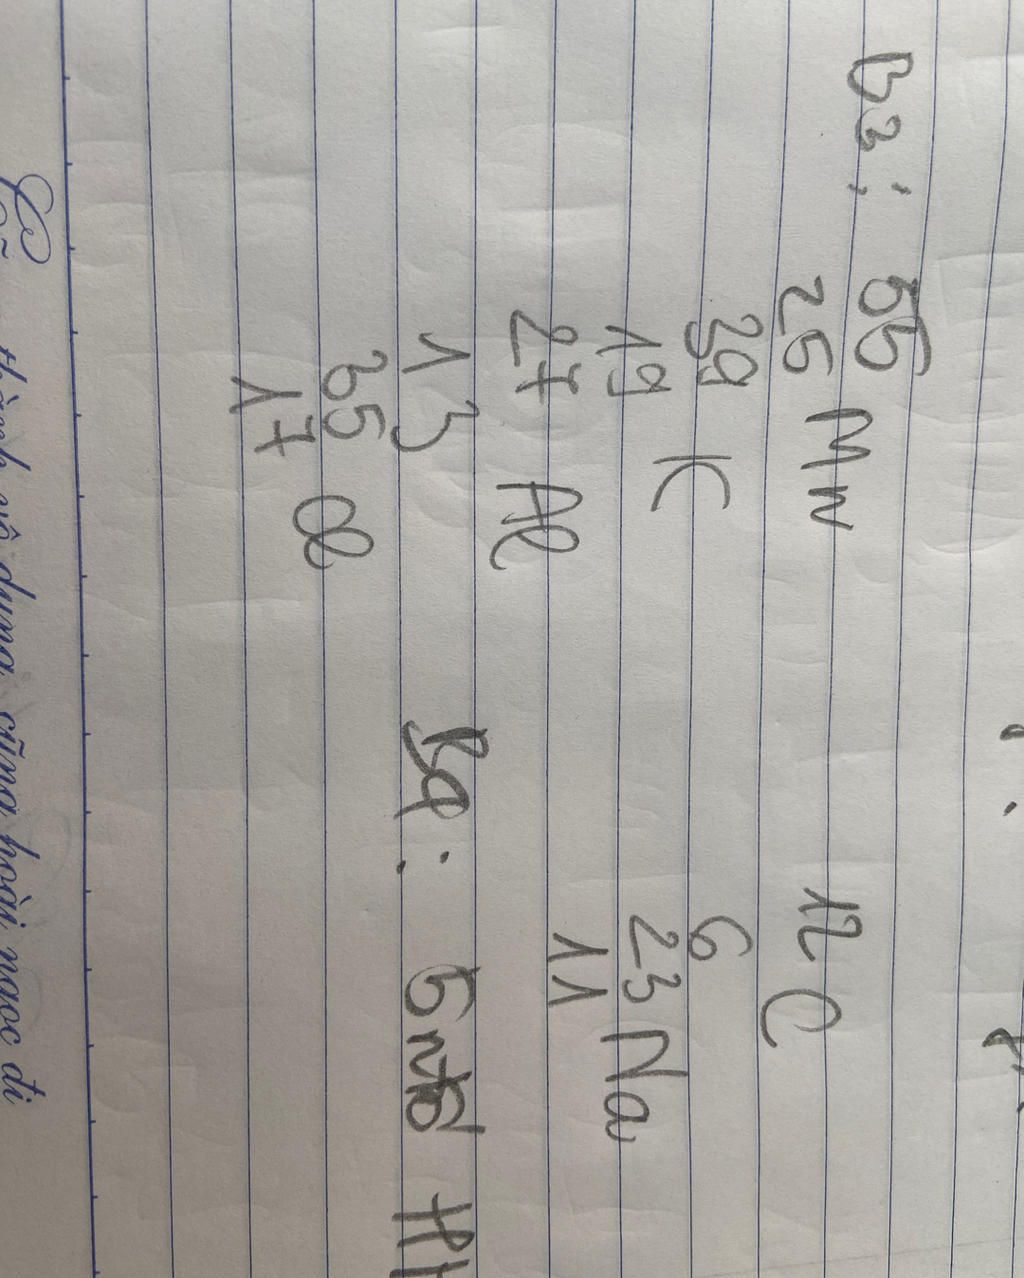 B3 : 55
25 Mn 12 C
39 K 6
19 23 Na
27 Al 11
13 B4 : 5 ntố
35 Cl
17
thành vô dụng, cũng hoài ngọc đi